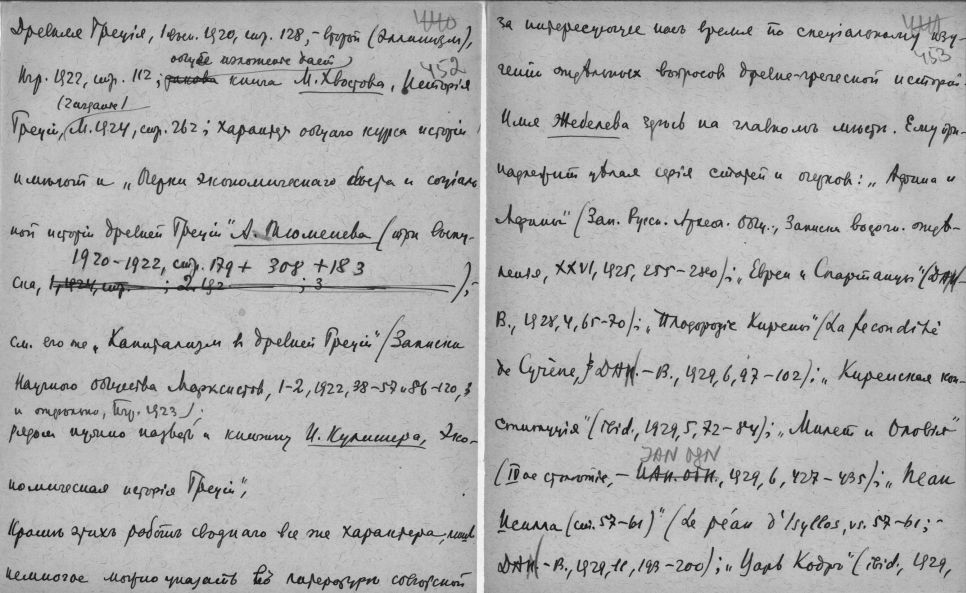 440
452
Древняя Греція, I вып. 1920, стр. 128, – второй (Эллинизм),
общее изложение дает
Птр. 1922, стр. 112; книга М. Хвостова, Исторія
(2 издание)
Греціи, М. 1924, стр. 262; характер общаго курса исторіи
имеют и „Очерки экономическаго быта и соціаль
ной исторіи древней Греціи" А. Тюменева (три выпу-
1920–1922, стр. 179 + 308 + 183
ска, 1, 1924, стр. ; 2. 192 ; 3 );–
см. его же „Капитализм в древней Греціи" (Записки
Научного общества Марксистов, 1–2, 1922, 38–57 и 86–120, 3
и отдельно, Птр. 1923);
рядом нужно назвать и книжку И. Кулишера, „Эко-
номическая исторія Греціи",
Кромѣ этих работъ своднаго все же характера,
немногое можно указать въ литературѣ совѣтской
441
453
за интересующее насъ время по спеціальному изу-
ченію отдѣльных вопросов древне-греческой исторіи.
Имя Жебелева здѣсь на главномъ мѣстѣ. Ему при-
надлежит цѣлая серія статей и очерков: „Афина и
Афины" (Зап. Русск. Археол. Общ., Записки восточн. отдѣ-
ленія, XXVI, 1925, 255–280); „Евреи и Спартанцы" (ДАН–
В., 1928, 4, 65–70); „Плодородіе Кирены" (La fécondité
de Cyrène, ДАН–В., 1929, 6, 97–102); „Киренская кон-
ституція" (ibid., 1929, 5, 72–84); „Милет и Ольвія"
ИАН ОГН
(IVое столѣтіе, – ИАН. ОГН., 1929, 6, 427–435); „Пеан
Исилла (ст. 57–61)" (Le péan d'Isyllos, vs. 57–61; –
ДАН–В., 1929, 11, 193–200); „Царь Кодръ" (ibid., 1929,